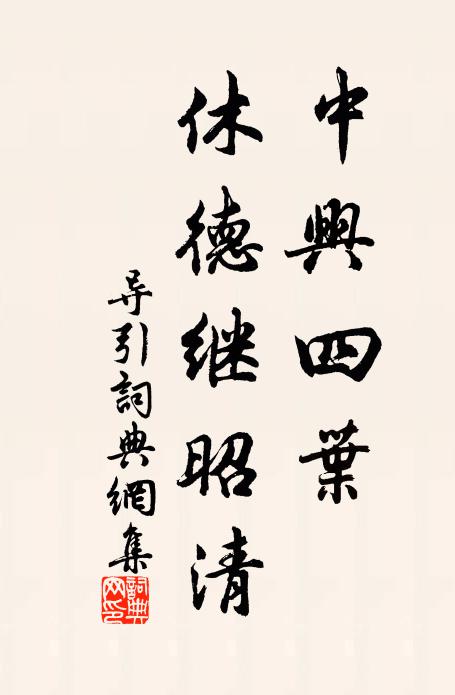 中興四葉
休德继昭清
导引詞典網集
詞典
网印